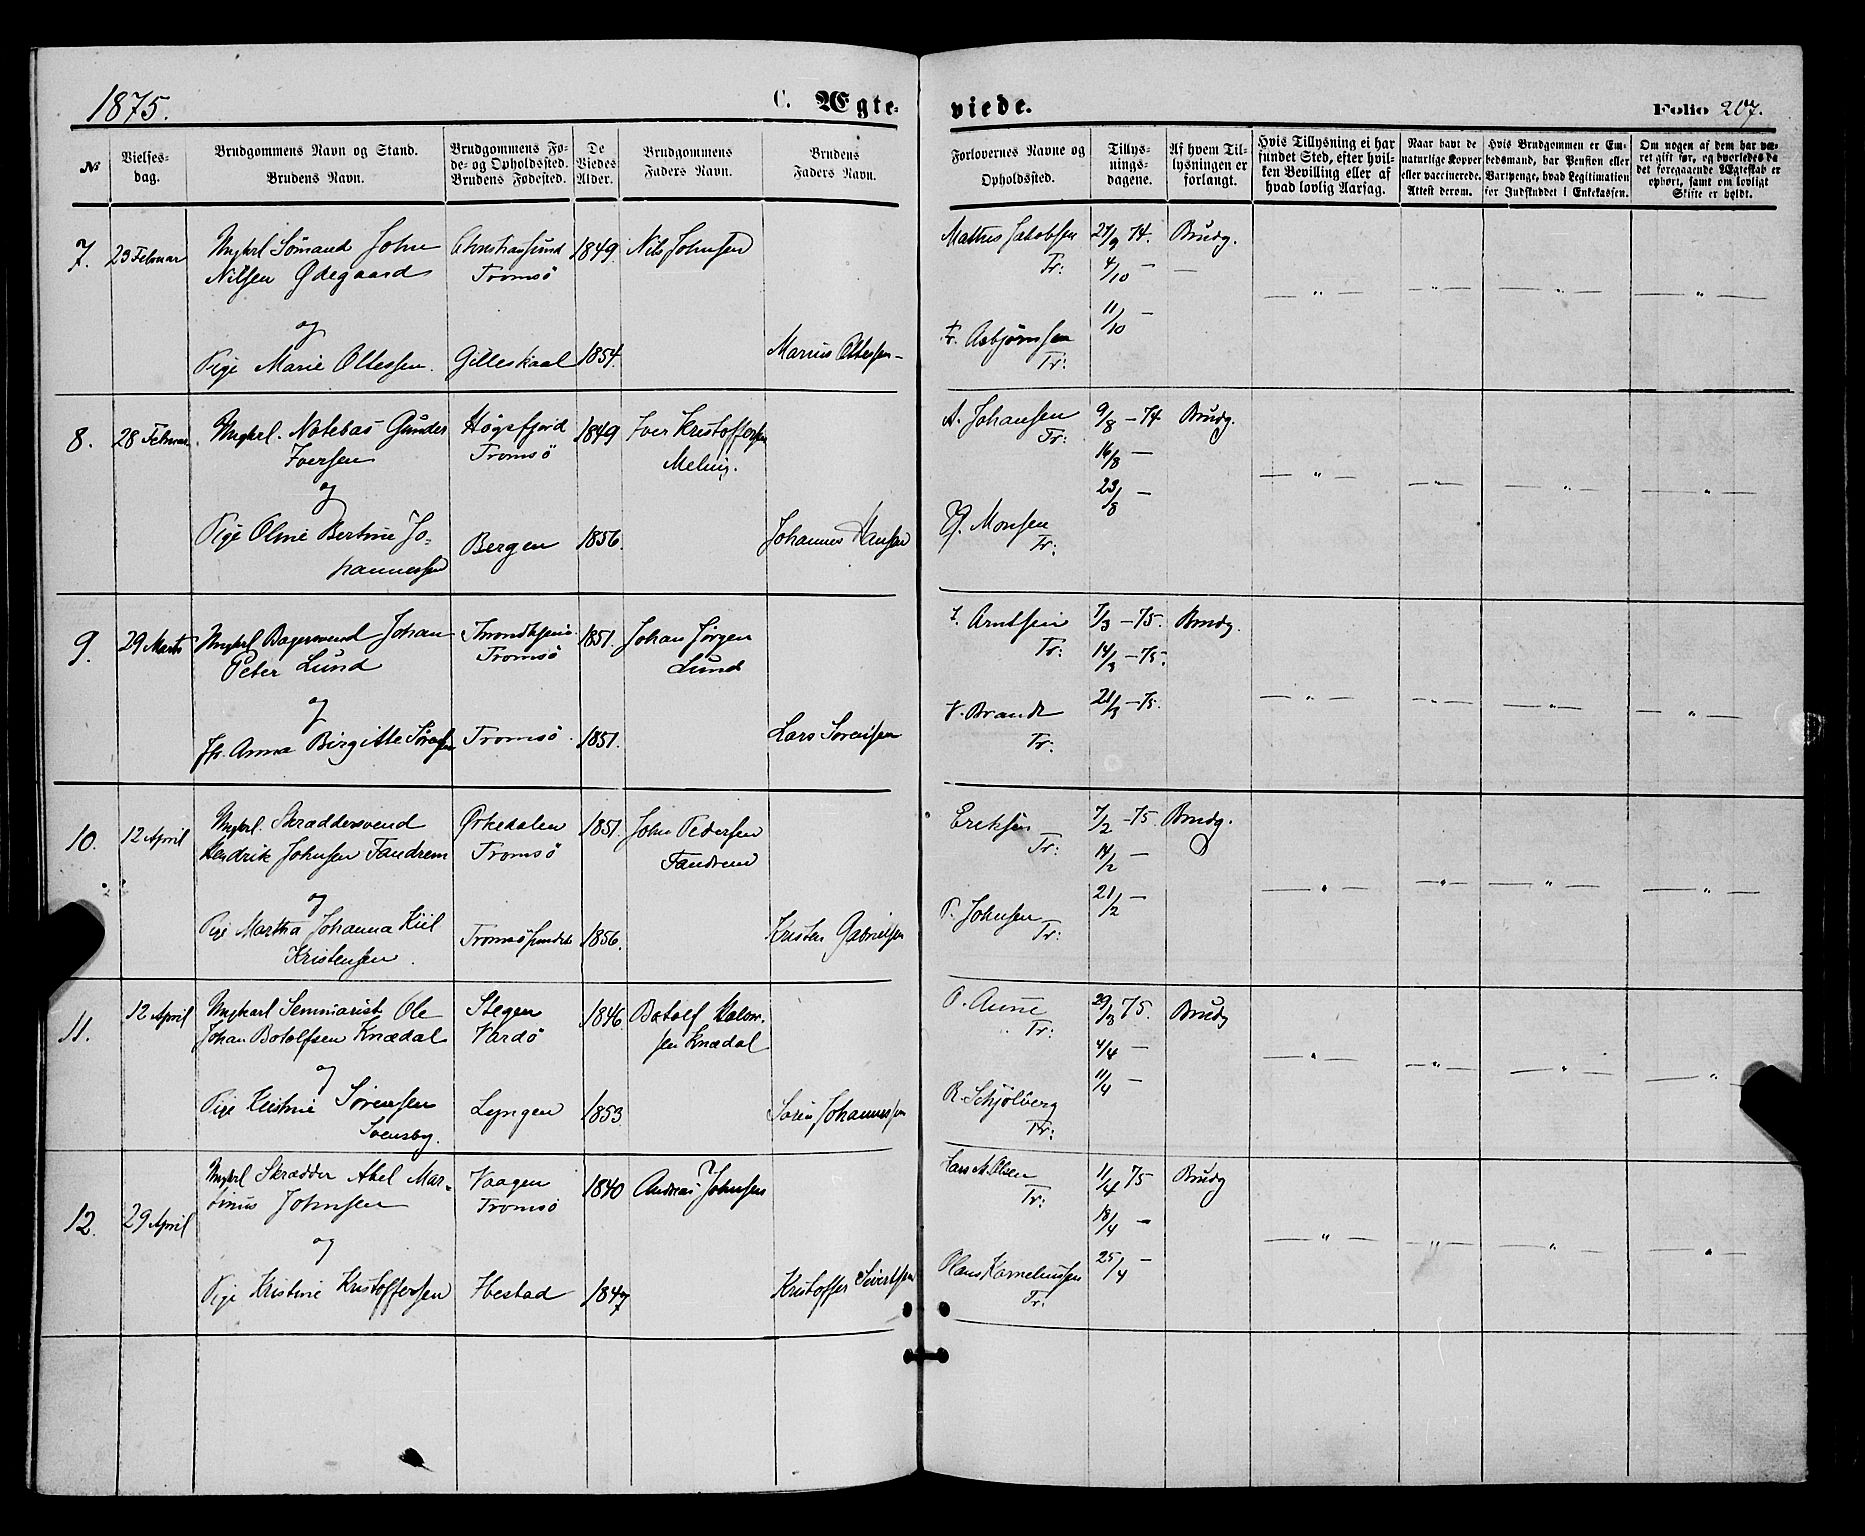 1875.
C. Ægte-
viede.
Folio 207.
№
Vielses-
dag.
Brudgommens Navn og Stand.
Brudens Navn.
Brudgommens Fø-
de- og Opholdssted.
Brudens Fødested.
De
Viedes
Alder.
Brudgommens
Faders Navn.
Brudens
Faders Navn.
Forlovernes Navne og
Opholdssted.
Tillys-
nings-
dagene.
Af hvem Til-
lysningen er
forlangt.
Hvis Tillysning ei har
fundet Sted, efter hvil-
ken Bevilling eller af
hvad lovlig Aarsag.
Naar havt de
naturlige Kopper
eller vaccinerede.
Attest derom.
Hvis Brudgommen er Em-
bedsmand, har Pension eller
Vartpenge, hvad Legitimation
for Indskuddet i Enkekassen.
Om nogen af dem har væ-
ret gift før, og hvorledes da
det foregaaende Ægteskab er
ophørt, samt om lovligt
Skifte er holdt.
7. 23 Februar Ungkrl Sømand John Christiansund 1849. Nils Johnsen
Nilsen Ødegaard Tromsö
og
Pige Marie Ottessen. Gilleskaal 1854. Marius Ottessen
Mathis Jakobsen 27/9 74. Brudg.
Tr: 4/10 —
11/10 —
Fr. Asbjørnssen
Tr:
8. 28 Februar. Ungkrl. Notebas Gunder Høgsfjord 1849 Iver Kristoffersen
Iversen Tromsö Meling.
og
Pige Oline Bertine Jo- Bergen 1856. Johannes Hansen
hannessen
A. Johansen 9/8 — 74 Brudg.
Tr: 16/8 —
23/8 —
Monsen
Tr:
9. 29 Marts Ungkrl Bagersvend Johan Trondhjem 1851. Johan Jørgen
Peter Lund Tromsö Lund
og
Jfr. Anna Birgitte Sørensen Tromsö 1851. Lars Sørensen
Arntsen 7/3 — 75. Brudg.
Tr: 14/3 — 75.
21/3 — 75.
V. Brandt
Tr:
10. 12 April Ungkrl. Skræddersvend Ørkedalen 1851. John Pedersen
Hendrik Johnsen Fandrem Tromsö Fandrem
og
Pige Martha Johanna Kiil Tromsösundet 1856. Kristen Gabrielsen
Kristensen.
Eriksen 7/2 — 75. Brudg.
Tr: 14/2 —
21/2 —
P. Johnsen
Tr:
11. 12 April Ungkarl Seminarist Ole Stegen 1846 Botolf
Johan Botolfsen Knædal Vardö sen Knædal
og
Pige Kristine Sørensen Lyngen 1853 Søren Johannessen
Svensby.
O. Aune 29/3 75. Brudg
Tr: 4/4 —
11/4 —
R. Schjölberg
Tr:
12. 29 April Ungkrl Skrædder Abel Mar- Vaagen 1840 Andreas Johnsen
tinus Johnsen Tromsö
og
Pige Kristine Kristoffersen Ibestad 1847 Kristoffer Sivertsen
Lars A. Olsen 11/4 75 Brudg
Tr: 18/4 —
25/4 —
Olaus Korneliussen
Tr: